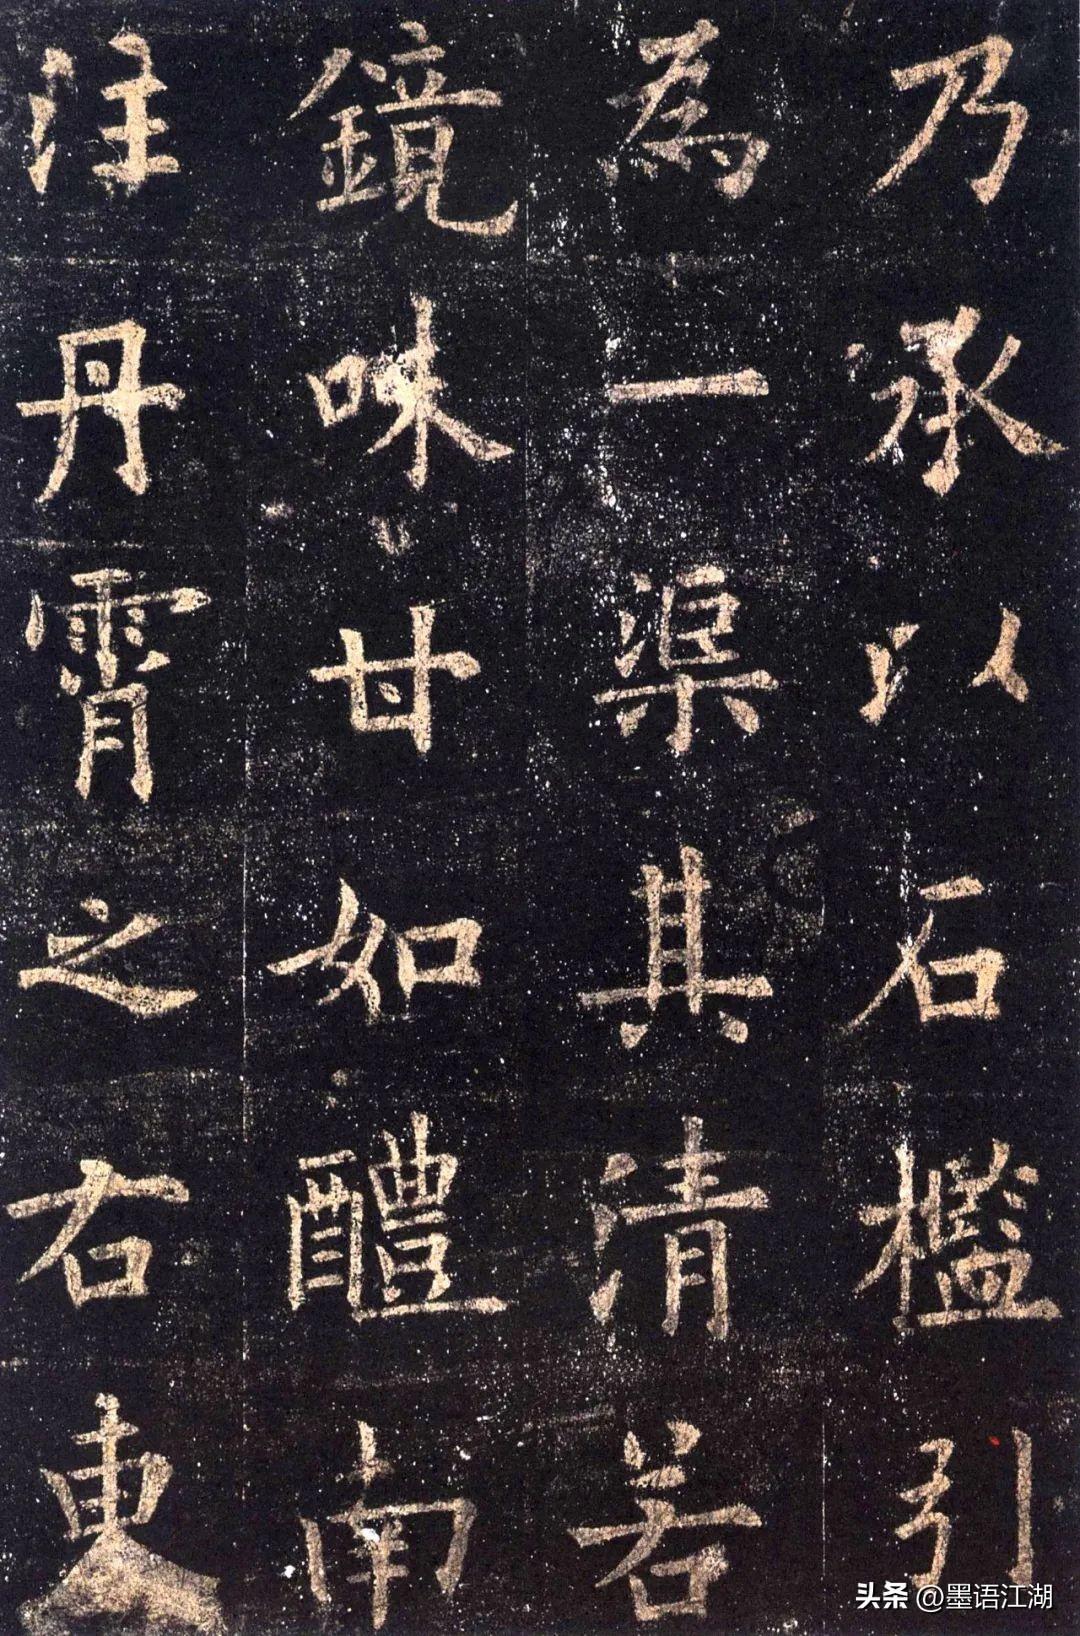 乃承以石檻引
為一渠其清若
鏡味甘如醴南
注丹霄之右東
头条 @墨语江湖